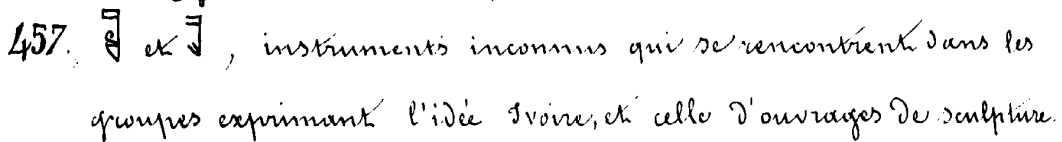 457. et , instruments inconnus qui se rencontrent dans les
groupes exprimant l'idée Ivoire, et celle d'ouvrages de sculpture.